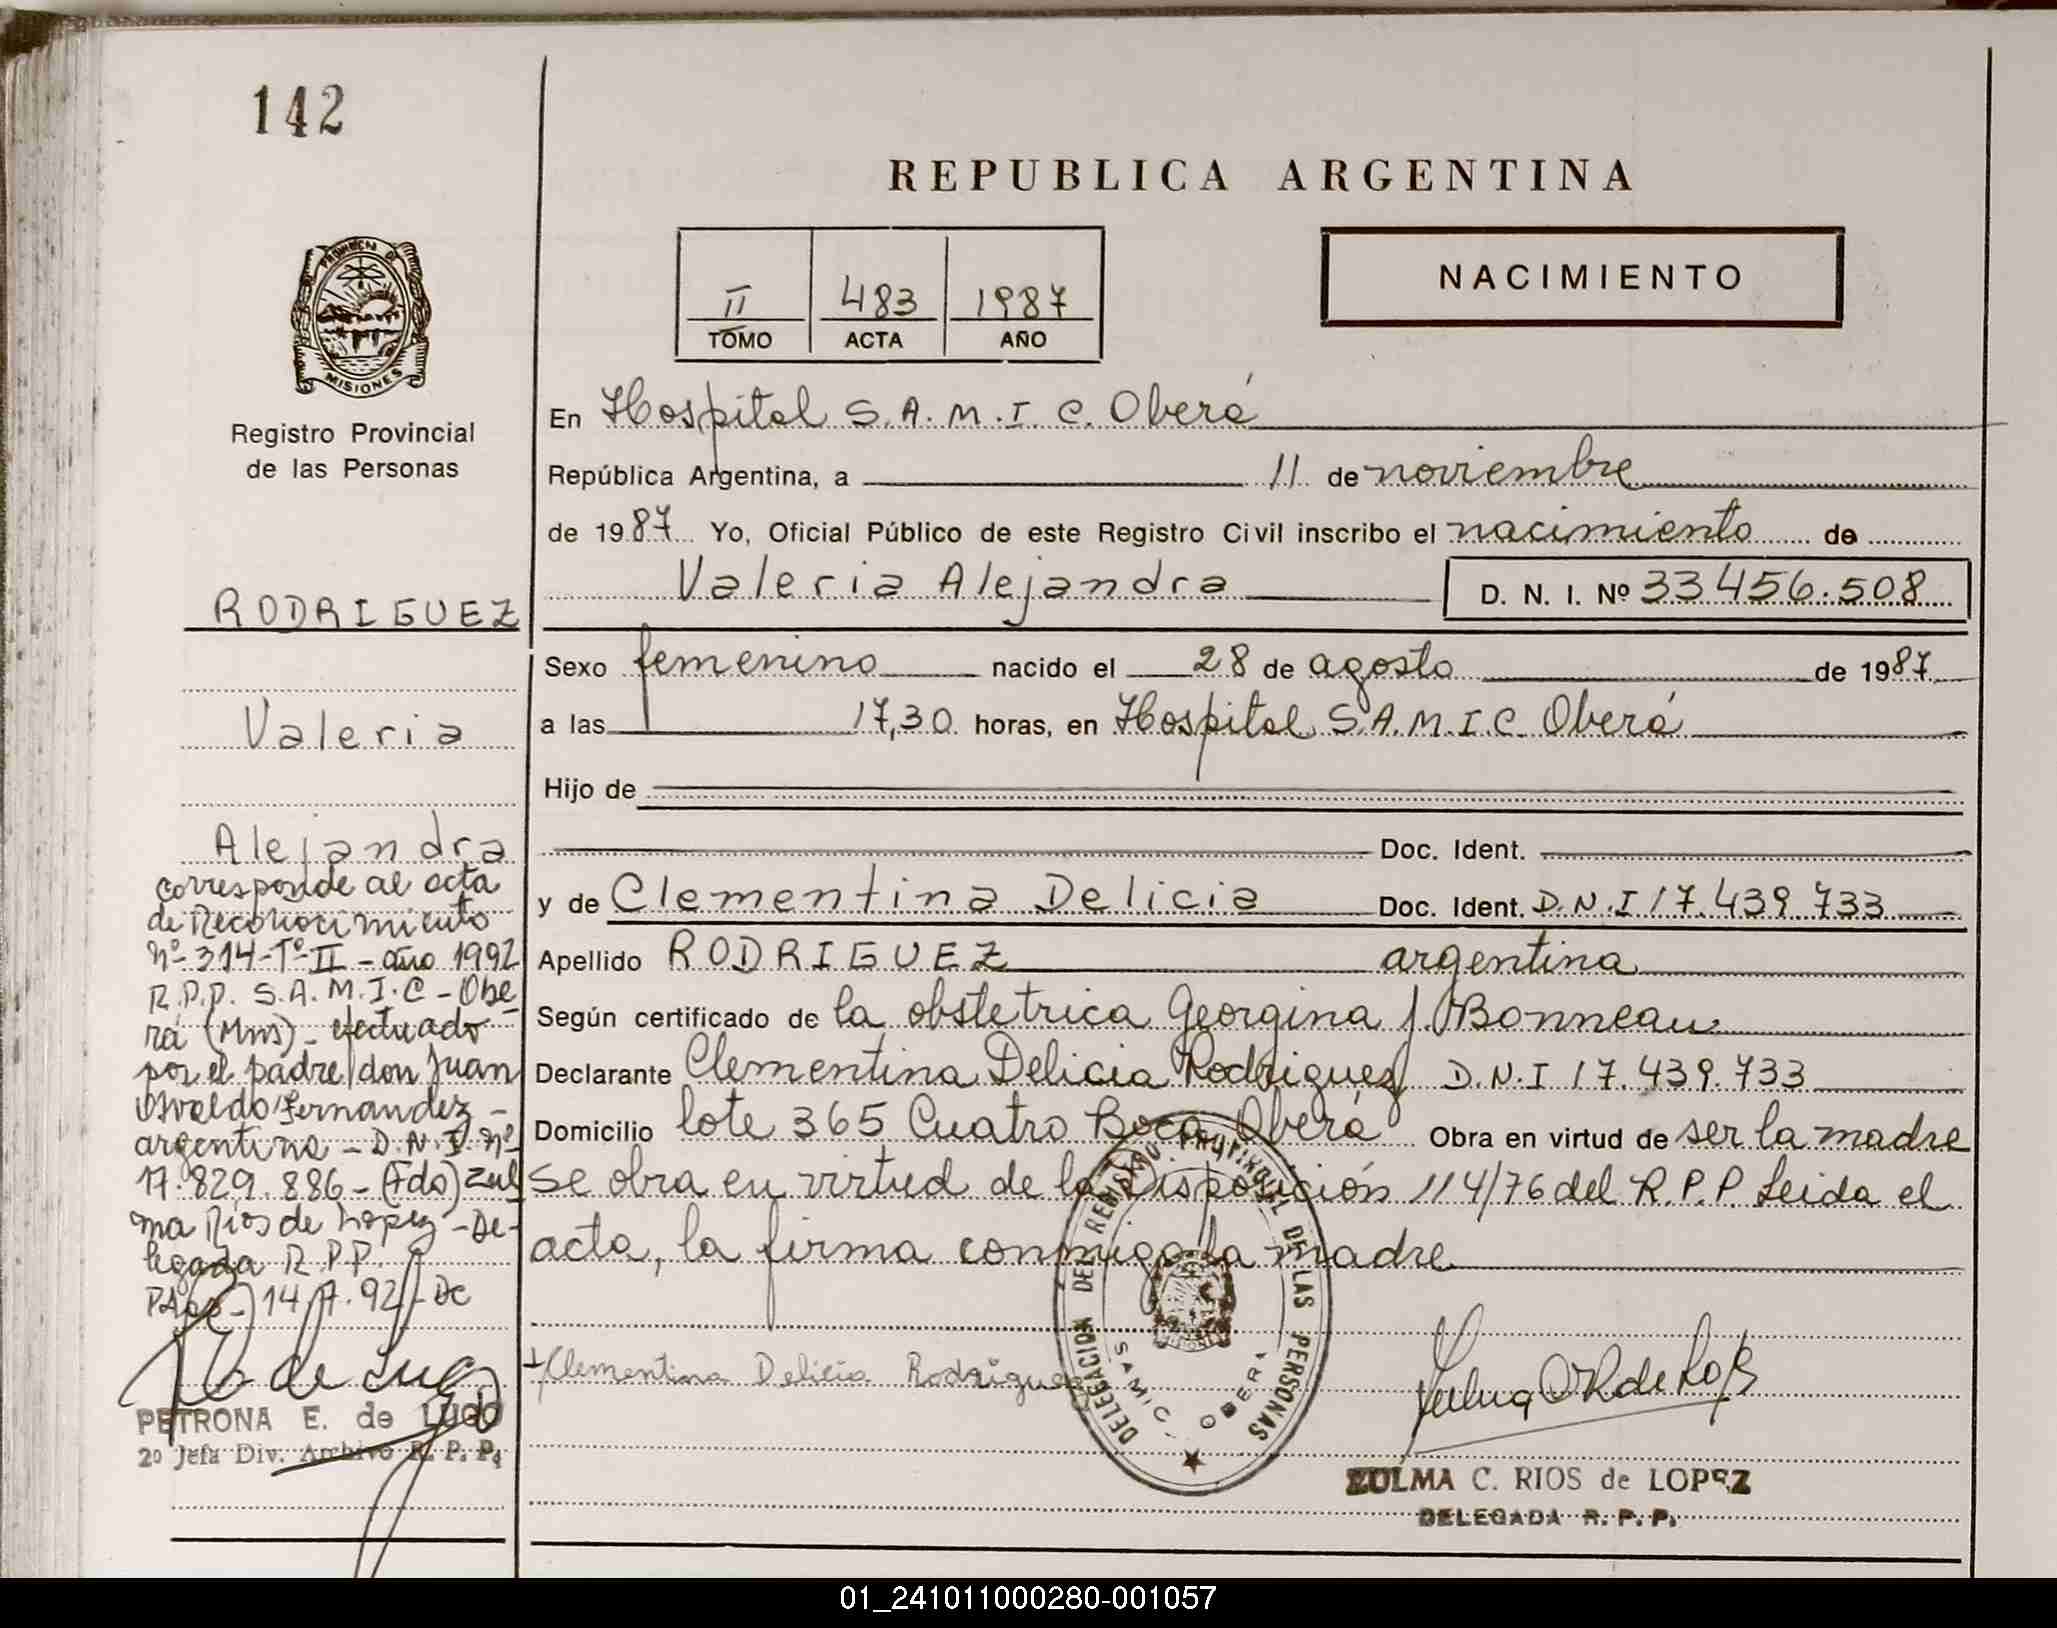 142
REPUBLICA ARGENTINA
II 483 1987
TOMO ACTA AÑO
NACIMIENTO
PROVINCIA DE MISIONES
Registro Provincial
de las Personas
RODRIGUEZ
Valeria
Alejandra
corresponde al acta
de Reconocimiento
Nº 314-Tº-II-año 1992
R.P.P. S.A.M.I.C-Obe-
rá (Mns)- efectuado
por el padre don Juan
Osvaldo Fernandez-
argentino-D.N.I. nº
17.829.886-(Fdo) Zul
ma Rios de Lopez-De-
legada R.P.P.
14 92
PETRONA E. de LUGO
2º Jefa Div. Archivo R. P. P.
En Hospital S.A.M.I.C. Oberá
República Argentina, a 11 de noviembre
de 1987 Yo, Oficial Público de este Registro Civil inscribo el nacimiento de
Valeria Alejandra D. N. I. Nº 33456.508
Sexo femenino nacido el 28 de agosto de 1987
a las 17,30 horas, en Hospital S.A.M.I.C. Oberá
Hijo de
Doc. Ident.
y de Clementina Delicia Doc. Ident. D.N.I 17.439.733
Apellido RODRIGUEZ argentina
Según certificado de la obstetrica Georgina J. Bonneau
Declarante Clementina Delicia Rodriguez D.N.I 17.439.733
Domicilio lote 365 Cuatro Boca Oberá Obra en virtud de ser la madre
se obra en virtud de la Disposición 114/76 del R.P.P. Leida el
acta, la firma conmigo la madre
Clementina Delicia Rodriguez
DELEGACION DEL REGISTRO PROVINCIAL DE LAS PERSONAS
SAMIC - OBERA
ZULMA C. RIOS de LOPEZ
DELEGADA R. P. P.
01_241011000280-001057